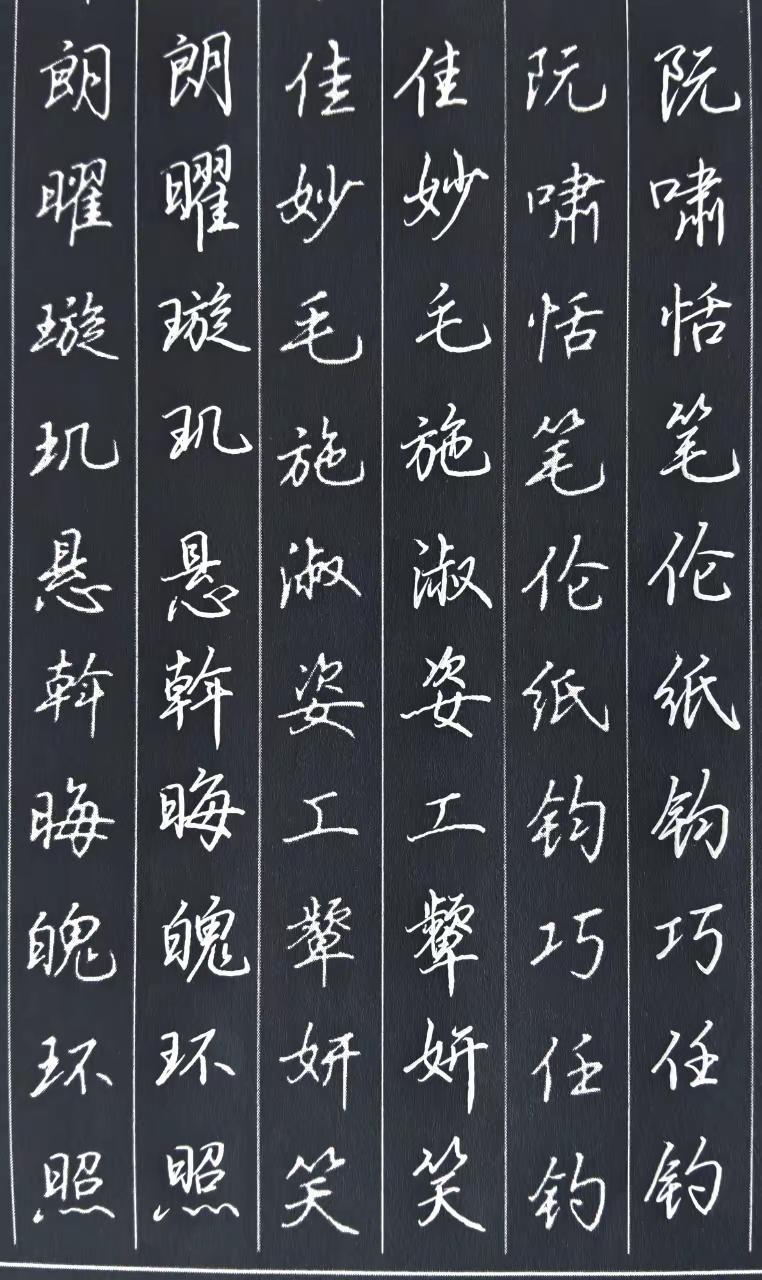 阮啸恬笔伦纸钧巧任钓
阮啸恬笔伦纸钧巧任钓
佳妙毛施淑姿工颦妍笑
佳妙毛施淑姿工颦妍笑
朗曜璇玑悬斡晦魄环照
朗曜璇玑悬斡晦魄环照